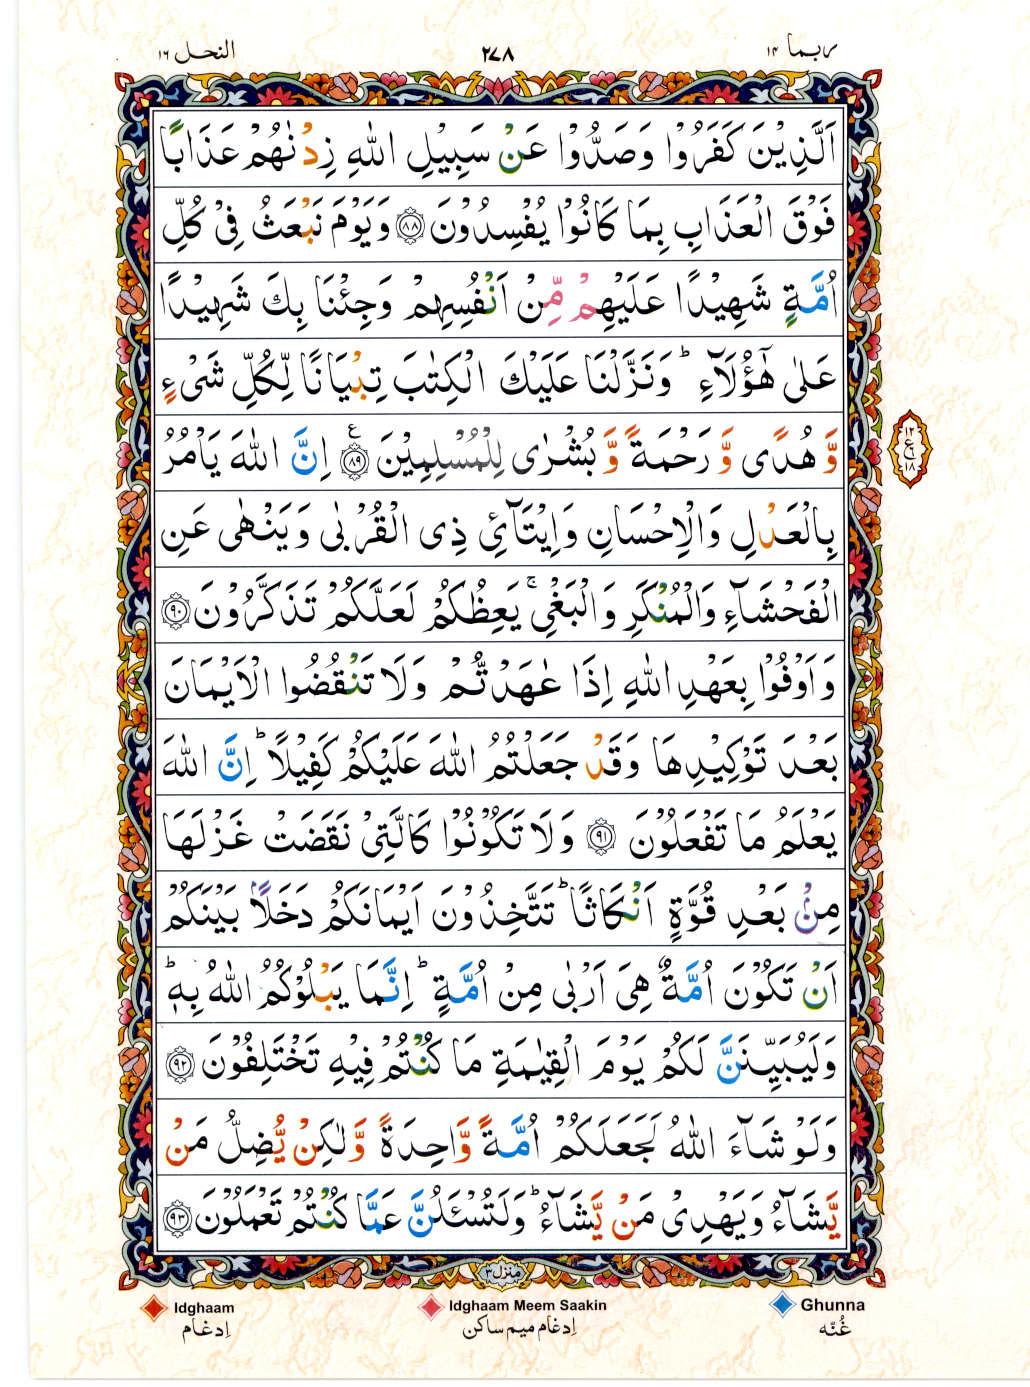 ربما ۱۴
۲۷۸
النحل ۱۶
اَلَّذِيْنَ كَفَرُوْا وَصَدُّوْا عَنْ سَبِيْلِ اللّٰهِ زِدْنٰهُمْ عَذَابًا
فَوْقَ الْعَذَابِ بِمَا كَانُوْا يُفْسِدُوْنَ ﴿۸۸﴾ وَيَوْمَ نَبْعَثُ فِيْ كُلِّ
اُمَّةٍ شَهِيْدًا عَلَيْهِمْ مِّنْ اَنْفُسِهِمْ وَجِئْنَا بِكَ شَهِيْدًا
عَلٰى هٰٓؤُلَآءِ ؕ وَنَزَّلْنَا عَلَيْكَ الْكِتٰبَ تِبْيَانًا لِّكُلِّ شَيْءٍ
وَّهُدًى وَّرَحْمَةً وَّبُشْرٰى لِلْمُسْلِمِيْنَ ﴿۸۹﴾ ع اِنَّ اللّٰهَ يَاْمُرُ
بِالْعَدْلِ وَالْاِحْسَانِ وَاِيْتَآئِ ذِي الْقُرْبٰى وَيَنْهٰى عَنِ
الْفَحْشَآءِ وَالْمُنْكَرِ وَالْبَغْيِ ۚ يَعِظُكُمْ لَعَلَّكُمْ تَذَكَّرُوْنَ ﴿۹۰﴾
وَاَوْفُوْا بِعَهْدِ اللّٰهِ اِذَا عٰهَدْتُّمْ وَلَا تَنْقُضُوا الْاَيْمَانَ
بَعْدَ تَوْكِيْدِهَا وَقَدْ جَعَلْتُمُ اللّٰهَ عَلَيْكُمْ كَفِيْلًا ؕ اِنَّ اللّٰهَ
يَعْلَمُ مَا تَفْعَلُوْنَ ﴿۹۱﴾ وَلَا تَكُوْنُوْا كَالَّتِيْ نَقَضَتْ غَزْلَهَا
مِنْۢ بَعْدِ قُوَّةٍ اَنْكَاثًا ؕ تَتَّخِذُوْنَ اَيْمَانَكُمْ دَخَلًاۢ بَيْنَكُمْ
اَنْ تَكُوْنَ اُمَّةٌ هِيَ اَرْبٰى مِنْ اُمَّةٍ ؕ اِنَّمَا يَبْلُوْكُمُ اللّٰهُ بِهٖ ؕ
وَلَيُبَيِّنَنَّ لَكُمْ يَوْمَ الْقِيٰمَةِ مَا كُنْتُمْ فِيْهِ تَخْتَلِفُوْنَ ﴿۹۲﴾
وَلَوْ شَآءَ اللّٰهُ لَجَعَلَكُمْ اُمَّةً وَّاحِدَةً وَّلٰكِنْ يُّضِلُّ مَنْ
يَّشَآءُ وَيَهْدِيْ مَنْ يَّشَآءُ ؕ وَلَتُسْـَٔلُنَّ عَمَّا كُنْتُمْ تَعْمَلُوْنَ ﴿۹۳﴾
۱۲
ع ۶
۱۸
منزل ۳
Ghunna
Idghaam Meem Saakin
Idghaam
غُنّه
اِدغام میم ساکن
اِدغام